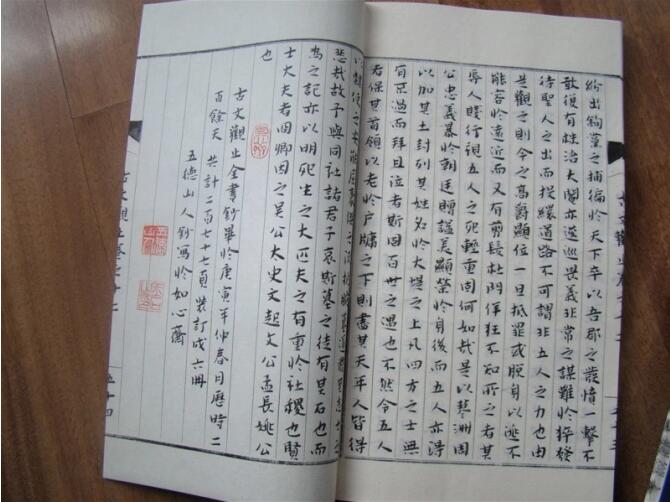 紛出鉤黨之捕徧於天下卒以吾郡之發憤一擊不
敢復有株治大閹亦逡巡畏義非常之謀難於猝發
待聖人之出而投繯道路不可謂非五人之力也由
是觀之則今之高爵顯位一旦抵罪或脫身以逃不
能容於遠近而又有剪髮杜門佯狂不知所之者其
辱人賤行視五人之死輕重固何如哉是以蓼洲周
公忠義暴於朝廷贈謚美顯榮於身後而五人亦得
以加其土封列其姓名於大堤之上凡四方之士無
有不過而拜且泣者斯固百世之遇也不然令五人
者保其首領以老於户牖之下則盡其天年人皆得
以隸使之安能屈豪傑之流扼腕墓道發其志士之
悲哉故予與同社諸君子哀斯墓之徒有其石也而
為之記亦以明死生之大匹夫之有重於社稷也賢
士大夫者冏卿因之吳公太史文起文公孟長姚公
也
古文觀止全書鈔畢於庚寅年仲春月歷時二
百餘天 共計二百七十七頁裝訂成六冊
五德山人鈔寫於如心齋
古文觀止卷之十二
五十四